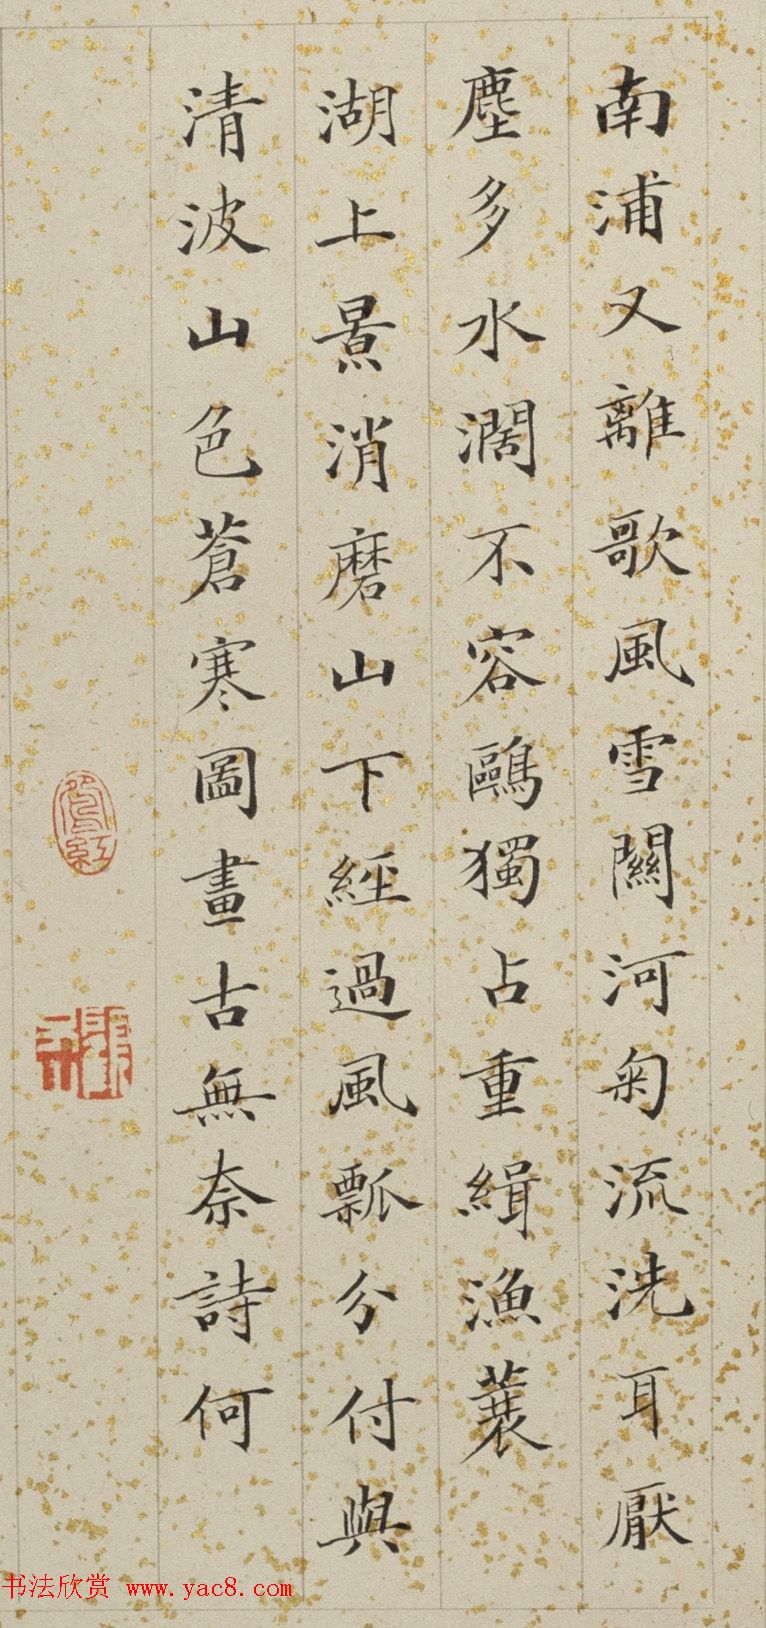 南浦又離歌風雪關河菊流洗耳厭
塵多水濶不容鷗獨占重緝漁蓑
湖上景消磨山下經過風瓢分付與
清波山色蒼寒圖畫古無奈詩何
书法欣赏 www.yac8.com